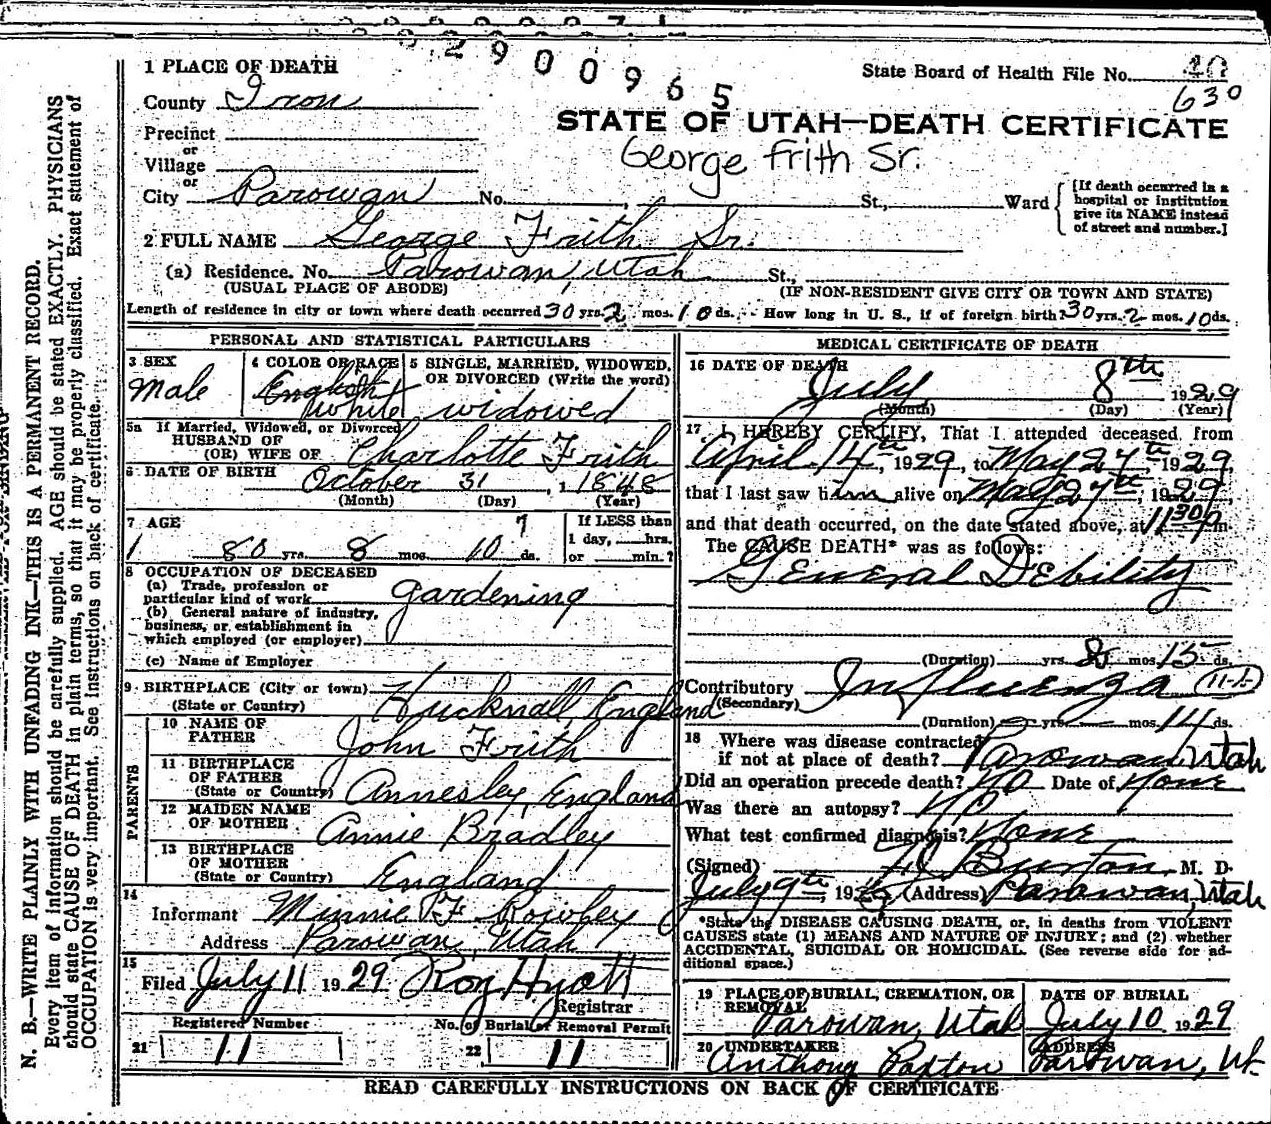 2900965
1 PLACE OF DEATH
State Board of Health File No. 40
630
County Iron
STATE OF UTAH—DEATH CERTIFICATE
Precinct
or
George Frith Sr.
Village
or
City Parowan No. , St., Ward
[If death occurred in a hospital or institution give its NAME instead of street and number.]
2 FULL NAME George Frith Sr.
(a) Residence. No. Parowan, Utah St.,
(USUAL PLACE OF ABODE) (IF NON-RESIDENT GIVE CITY OR TOWN AND STATE)
Length of residence in city or town where death occurred 30 yrs. 2 mos. 10 ds. How long in U. S., if of foreign birth? 30 yrs. 2 mos. 10 ds.
PERSONAL AND STATISTICAL PARTICULARS
3 SEX Male
4 COLOR OR RACE English White
5 SINGLE, MARRIED, WIDOWED, OR DIVORCED (Write the word) widowed
5a If Married, Widowed, or Divorced
HUSBAND OF
(OR) WIFE OF Charlotte Frith
6 DATE OF BIRTH October 31, 1848
(Month) (Day) (Year)
7 AGE 80 yrs. 8 mos. 10 7 ds.
If LESS than 1 day, hrs. or min.?
8 OCCUPATION OF DECEASED
(a) Trade, profession or particular kind of work gardening
(b) General nature of industry, business, or establishment in which employed (or employer)
(c) Name of Employer
9 BIRTHPLACE (City or town) Hucknall, England
(State or Country)
PARENTS
10 NAME OF FATHER John Frith
11 BIRTHPLACE OF FATHER (State or Country) Annesley, England
12 MAIDEN NAME OF MOTHER Annie Bradley
13 BIRTHPLACE OF MOTHER (State or Country) England
14 Informant Minnie F. Rowley
Address Parowan, Utah
15 Filed July 11 1929 Roy Hyatt
Registrar
Registered Number No. of Burial or Removal Permit
21 11 22 11
MEDICAL CERTIFICATE OF DEATH
16 DATE OF DEATH July 8th 1929
(Month) (Day) (Year)
17 I HEREBY CERTIFY, That I attended deceased from
April 14th, 1929, to May 27th, 1929,
that I last saw him alive on May 27th, 1929
and that death occurred, on the date stated above, at 11 30 P m
The CAUSE DEATH* was as follows:
General Debility
(Duration) yrs. 8 mos. 15 ds.
Contributory Influenza
(Secondary)
(Duration) yrs. mos. 14 ds.
18 Where was disease contracted
if not at place of death? Parowan, Utah
Did an operation precede death? No Date of None
Was there an autopsy? No
What test confirmed diagnosis? None
(Signed) Burton M. D.
July 9th, 19 (Address) Parowan, Utah
*State the DISEASE CAUSING DEATH, or, in deaths from VIOLENT
CAUSES state (1) MEANS AND NATURE OF INJURY; and (2) whether
ACCIDENTAL, SUICIDAL OR HOMICIDAL. (See reverse side for ad-
ditional space.)
19 PLACE OF BURIAL, CREMATION, OR REMOVAL Parowan, Utah
DATE OF BURIAL July 10 1929
20 UNDERTAKER Anthony Paxton
ADDRESS Parowan, Ut.
READ CAREFULLY INSTRUCTIONS ON BACK OF CERTIFICATE
N. B.—WRITE PLAINLY WITH UNFADING INK—THIS IS A PERMANENT RECORD.
Every item of information should be carefully supplied. AGE should be stated EXACTLY. PHYSICIANS
should state CAUSE OF DEATH in plain terms, so that it may be properly classified. Exact statement of
OCCUPATION is very important. See instructions on back of certificate.